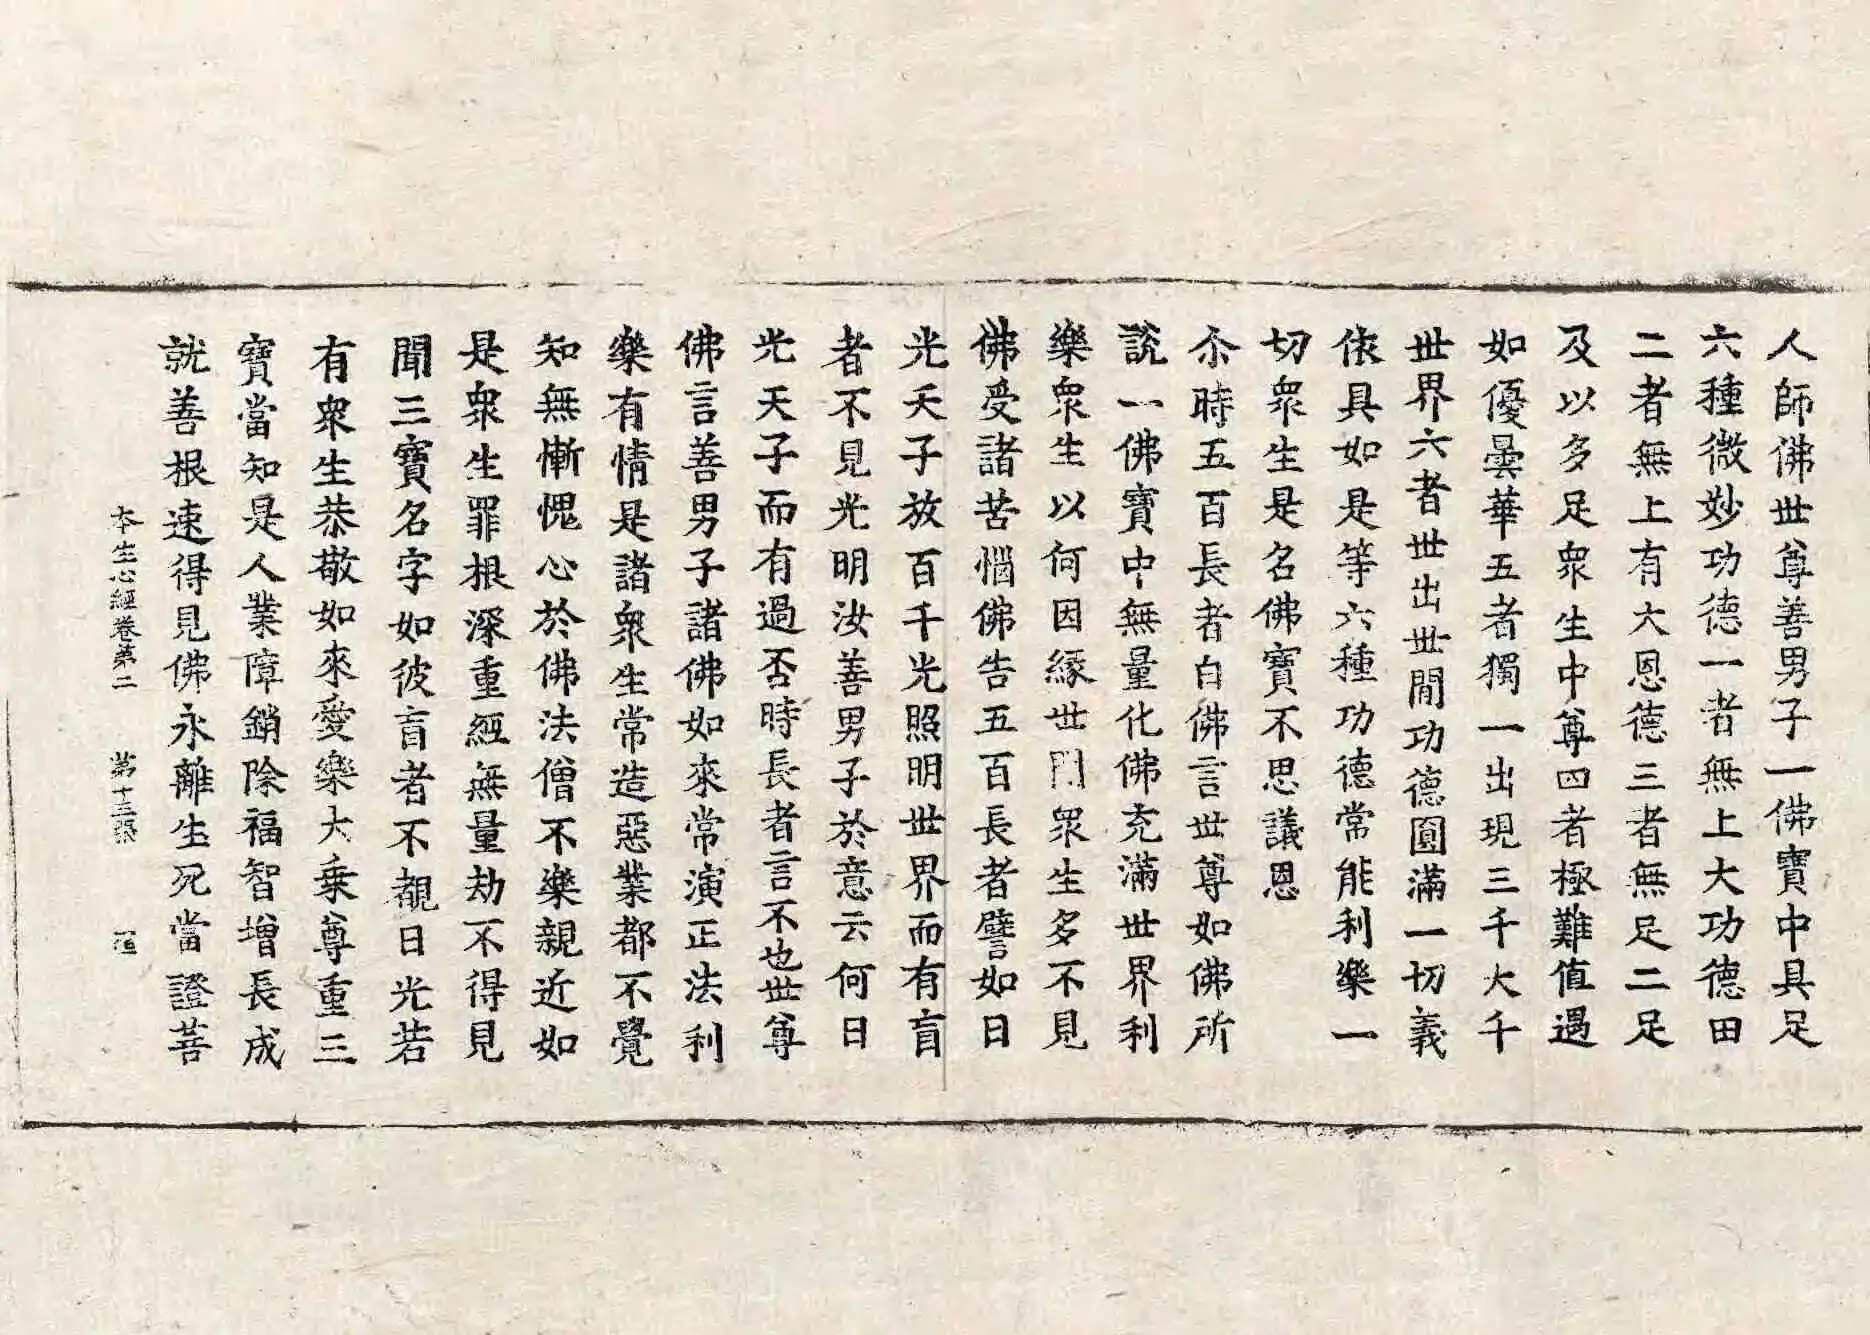 人師佛世尊善男子一佛寶中具足
六種微妙功德一者無上大功德田
二者無上有大恩德三者無足二足
及以多足衆生中尊四者極難值遇
如優曇華五者獨一出現三千大千
世界六者世出世閒功德圓滿一切義
依具如是等六種功德常能利樂一
切衆生是名佛寶不思議恩
尒時五百長者白佛言世尊如佛所
說一佛寶中無量化佛充滿世界利
樂衆生以何因緣世閒衆生多不見
佛受諸苦惱佛告五百長者譬如日
光天子放百千光照明世界而有盲
者不見光明汝善男子於意云何日
光天子而有過否時長者言不也世尊
佛言善男子諸佛如來常演正法利
樂有情是諸衆生常造惡業都不覺
知無慚愧心於佛法僧不樂親近如
是衆生罪根深重經無量劫不得見
聞三寶名字如彼盲者不覩日光若
有衆生恭敬如來愛樂大乗尊重三
寶當知是人業障銷除福智增長成
就善根速得見佛永離生死當證菩
本生心經卷第二 第十三張